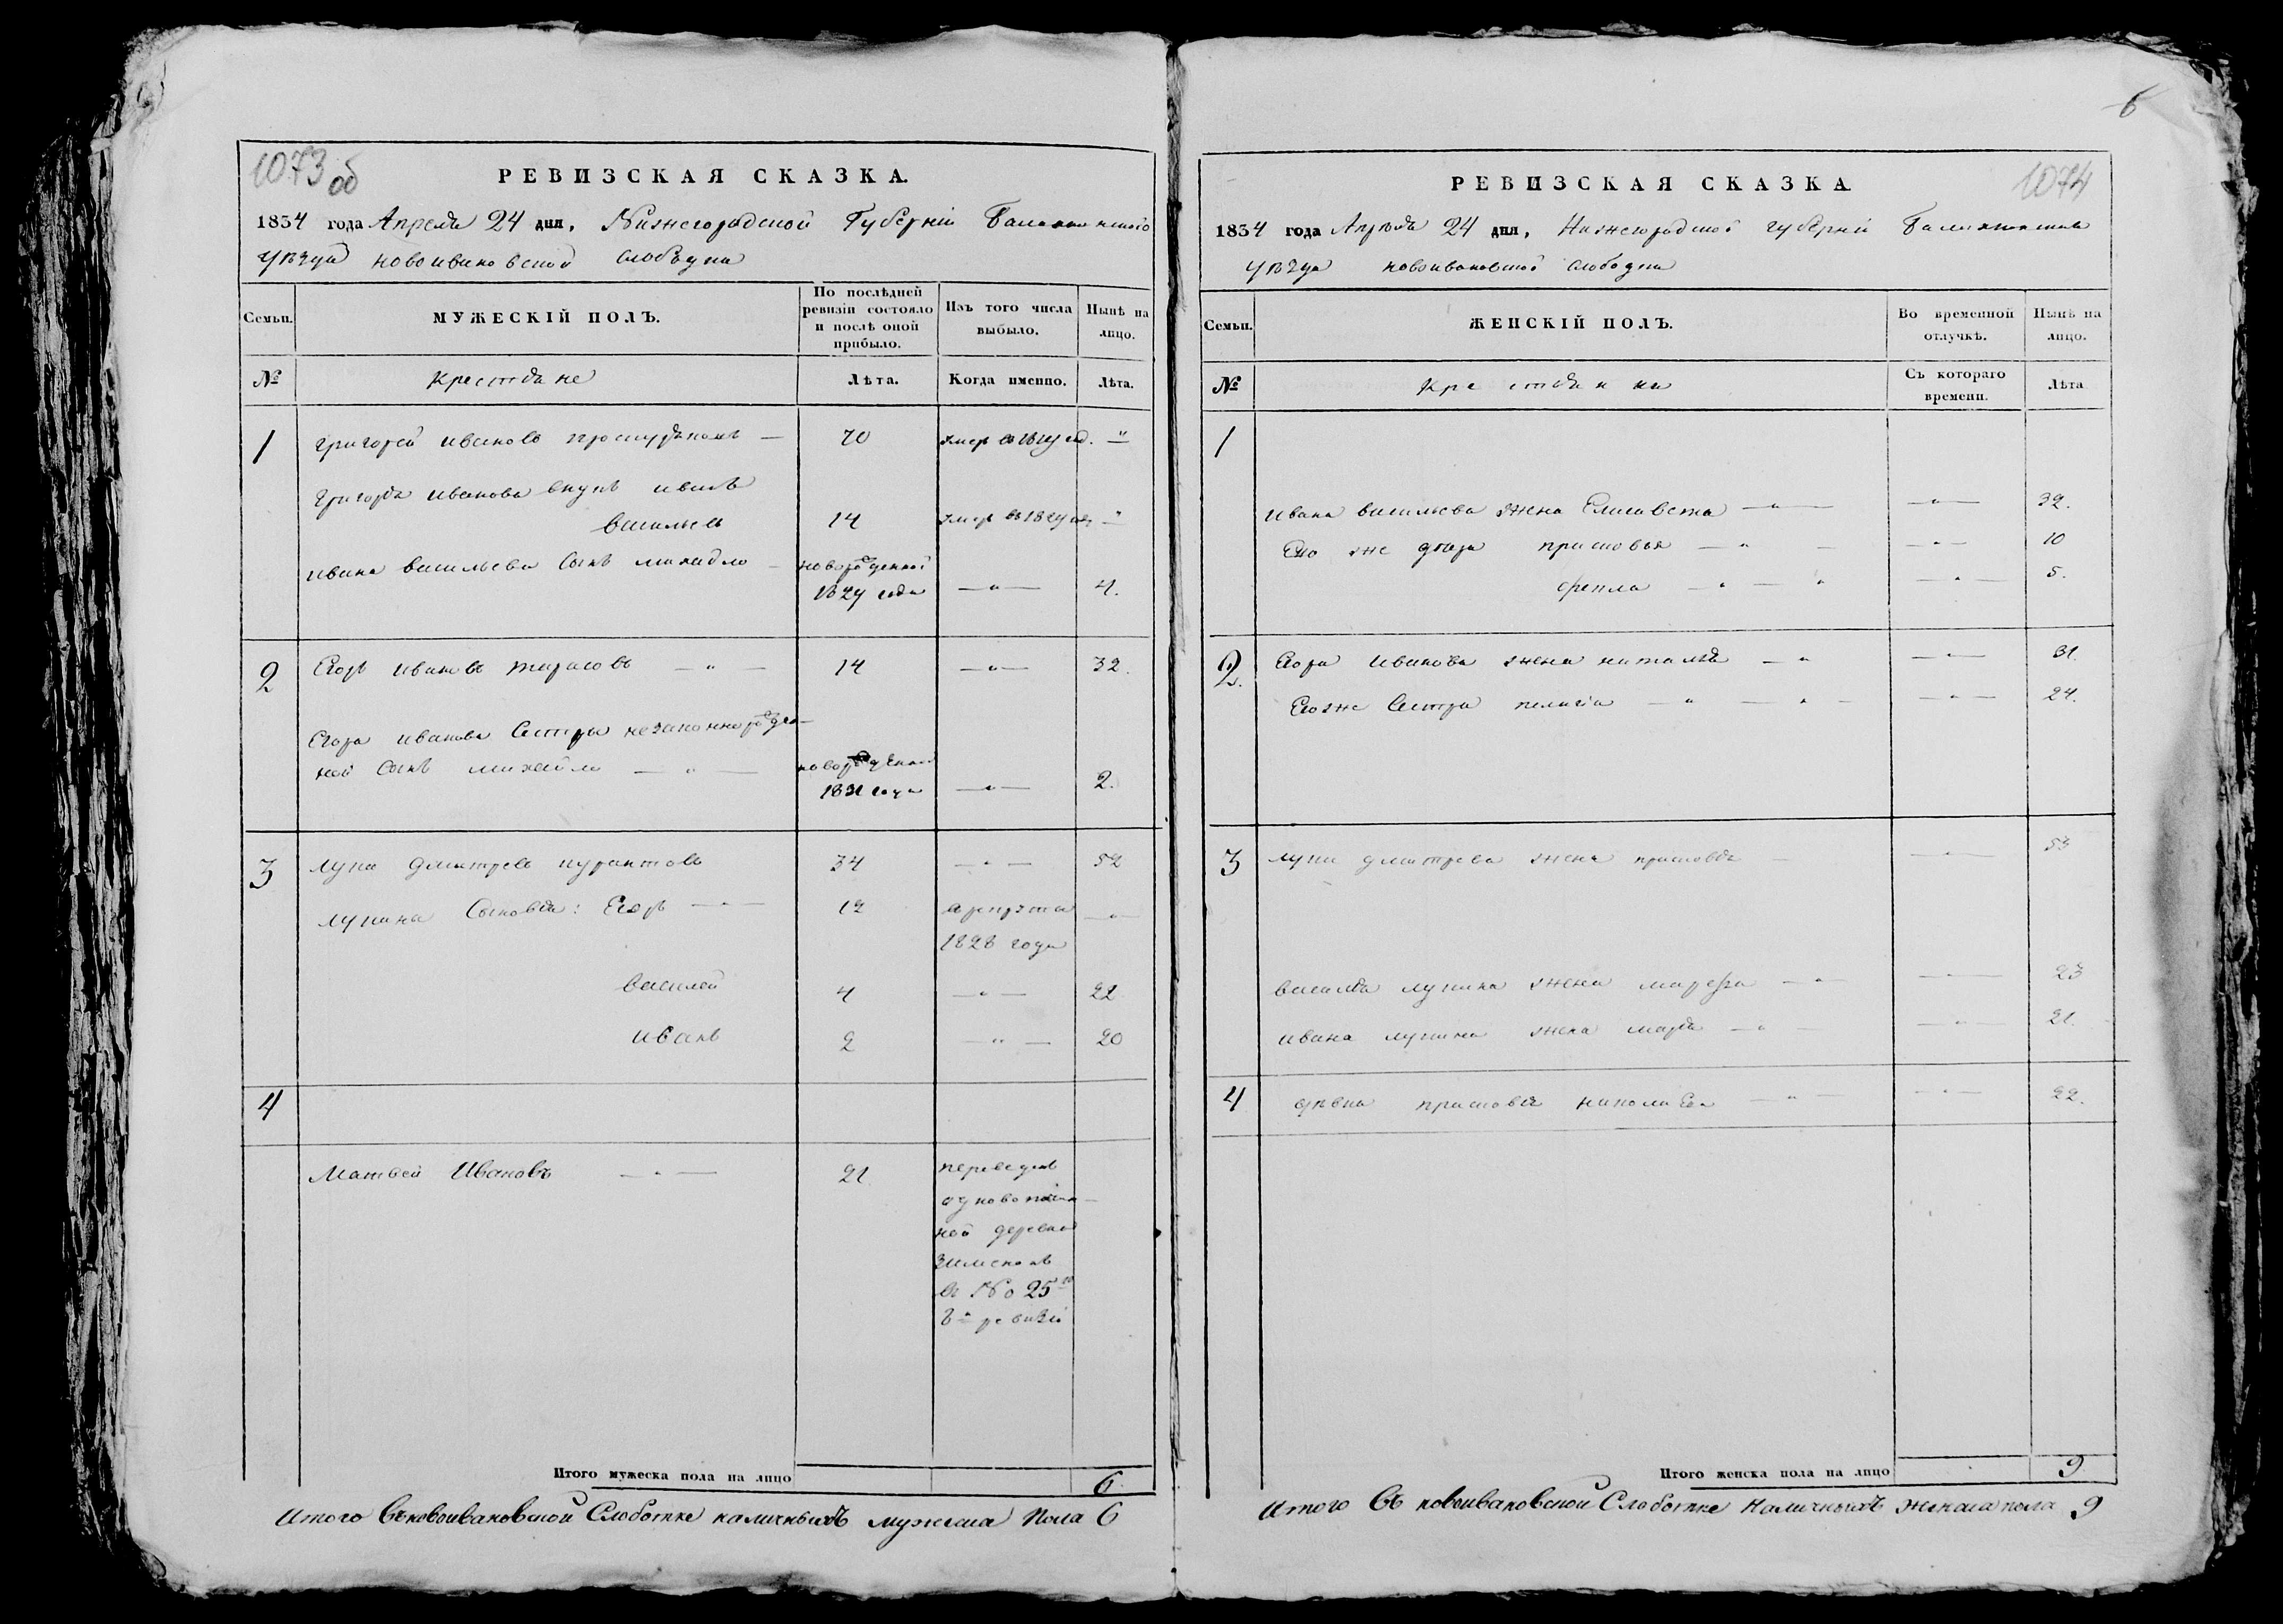 1073 об
РЕВИЗСКАЯ СКАЗКА.
1834 года Апреля 24 дня, Нижегородской Губерніи Балахнинскаго
уѣзда новоивановской слободки
Семьи. МУЖЕСКІЙ ПОЛЪ. По послѣдней ревизіи состояло и послѣ оной прибыло. Изъ того числа выбыло. Нынѣ на лицо.
№ Крестьяне Лѣта. Когда именно. Лѣта.
1 Григорей Ивановъ — 70 умер въ год. "
Григорья Иванова внукъ Иванъ
Васильев 14 умер въ 1829 "
Ивана Васильева сынъ Михайло — новорожденной
1829 года — " — 4.
2 Егоръ Ивановъ Тарасовъ — " — 14 — " — 32.
Егора Иванова сестры незаконнорожден-
ной сынъ Михайло — " — новорожденной
1831 года — " — 2.
3 Лупа Дмитрев 34 — " — 52
Лупина сыновья: Егоръ — " — 12 в рекруты — " —
1828 года
Василей 4 — " — 22
Иванъ 2 — " — 20
4
Матвей Ивановъ — " — 21 переведенъ
ной деревни
в № 25
ревизіи
Итого мужеска пола на лицо 6
Итого въ новоивановской Слоботке наличныхъ мужеска пола 6
6
1074
РЕВИЗСКАЯ СКАЗКА
1834 года Апреля 24 дня, Нижегородской губерніи Балахнинскаго
уѣзда новоивановской слободки
Семьи. ЖЕНСКІЙ ПОЛЪ. Во временной отлучкѣ. Нынѣ на лицо.
№ Крестьянки Съ котораго времени. Лѣта
1
Ивана Васильева жена Елисавета — " — — " — 32.
Ево же дочери Прасковья — " — — " — 10
Фекла — " — " — " — 5.
2. Егора Иванова жена Наталья — " — " — 31.
Евоже сестра Пелагія — " — " — — " — 24.
3 Лупы Дмитрева жена Прасковья — — " — 53
Василья Лупина жена Марфа — " — — " — 23
Ивана Лупина жена Марья — " — — " — 21.
4 девка Прасковья Николаева — " — — " — 22.
Итого женска пола на лицо 9
Итого Въ новоивановской Слоботке наличныхъ женска пола 9